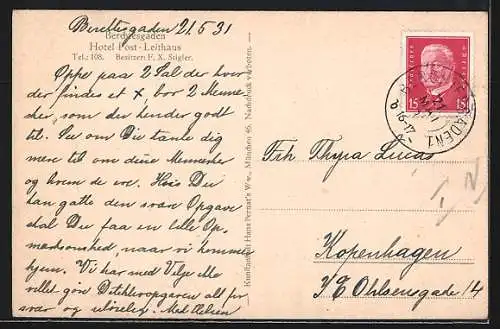 Berchtesgaden 21.5.31
Berchtesgaden
Hotel Post-Leithaus
Tel.: 108. Besitzer: F. X. Stigler.
Oppe paa 2 Sal der hvor
der findes et X, bor 2 Menne-
sker, som du kender godt
til. Se om Du tænke dig
mere til om disse Mennesker
og hvem de ere. Hvis Du
kan gætte den svære Opgave
skal Du faa en lille Op-
mærksomhed, naar vi kommer
hjem. Vi har med Vilje ikke
villet gøre Detektivopgaven alt for
svær og uløselig. Med Hilsen
Kunstanstalt Hans Pernat's Ww., München 45. Nachdruck verboten.
DEUTSCHES REICH
15 15
BERCHTESGADEN 1
16-17
Frk Thyra Lucas
Kopenhagen
J E Ohlsensgade 14